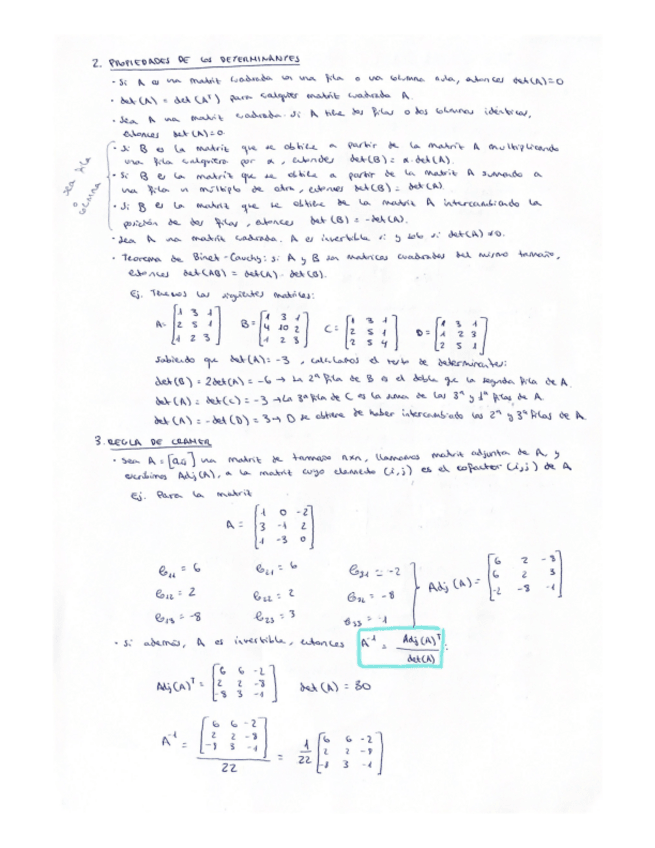 2. PROPIEDADES DE LOS DETERMINANTES
· Si A es una matriz cuadrada con una fila o una columna nula, entonces det(A)=0
· det(A) = det(Aᵀ) para cualquier matriz cuadrada A.
· Sea A una matriz cuadrada. Si A tiene dos filas o dos columnas idénticas,
entonces det(A)=0.
· Si B es la matriz que se obtiene a partir de la matriz A multiplicando
una fila cualquiera por α, entonces det(B) = α·det(A).
· Si B es la matriz que se obtiene a partir de la matriz A sumando a
una fila un múltiplo de otra, entonces det(B) = det(A).
· Si B es la matriz que se obtiene de la matriz A intercambiando la
posición de dos filas, entonces det(B) = -det(A).
sea fila
o
columna
· Sea A una matriz cuadrada. A es invertible si y solo si det(A) ≠0.
· Teorema de Binet-Cauchy: si A y B son matrices cuadradas del mismo tamaño,
entonces det(AB) = det(A)·det(B).
Ej. Tenemos las siguientes matrices:
A= [1 3 1; 2 5 1; 1 2 3] B= [1 3 1; 4 10 2; 1 2 3] C= [1 3 1; 2 5 1; 2 5 4] D= [1 3 1; 1 2 3; 2 5 1]
sabiendo que det(A)= -3, calculamos el resto de determinantes:
det(B) = 2det(A) = -6 → La 2ª fila de B es el doble que la segunda fila de A.
det(A) = det(C) = -3 → La 3ª fila de C es la suma de las 3ª y 1ª filas de A.
det(A) = -det(D) = 3 → D se obtiene de haber intercambiado las 2ª y 3ª filas de A.
3. REGLA DE CRAMER
· Sea A = [aij] una matriz de tamaño nxn, llamamos matriz adjunta de A, y
escribimos Adj(A), a la matriz cuyo elemento (i,j) es el cofactor (i,j) de A
Ej. Para la matriz
A = [1 0 -2; 3 -1 2; 1 -3 0]
C11 = 6 C21 = 6 C31 = -2
C12 = 2 C22 = 2 C32 = -8
C13 = -8 C23 = 3 C33 = -1
Adj(A)= [6 2 -8; 6 2 3; -2 -8 -1]
· Si además, A es invertible, entonces A⁻¹ = Adj(A)ᵀ / det(A).
Adj(A)ᵀ = [6 6 -2; 2 2 -8; -8 3 -1] det(A) = 30
A⁻¹ = [6 6 -2; 2 2 -8; -8 3 -1] / 22 = 1/22 [6 6 -2; 2 2 -8; -8 3 -1]